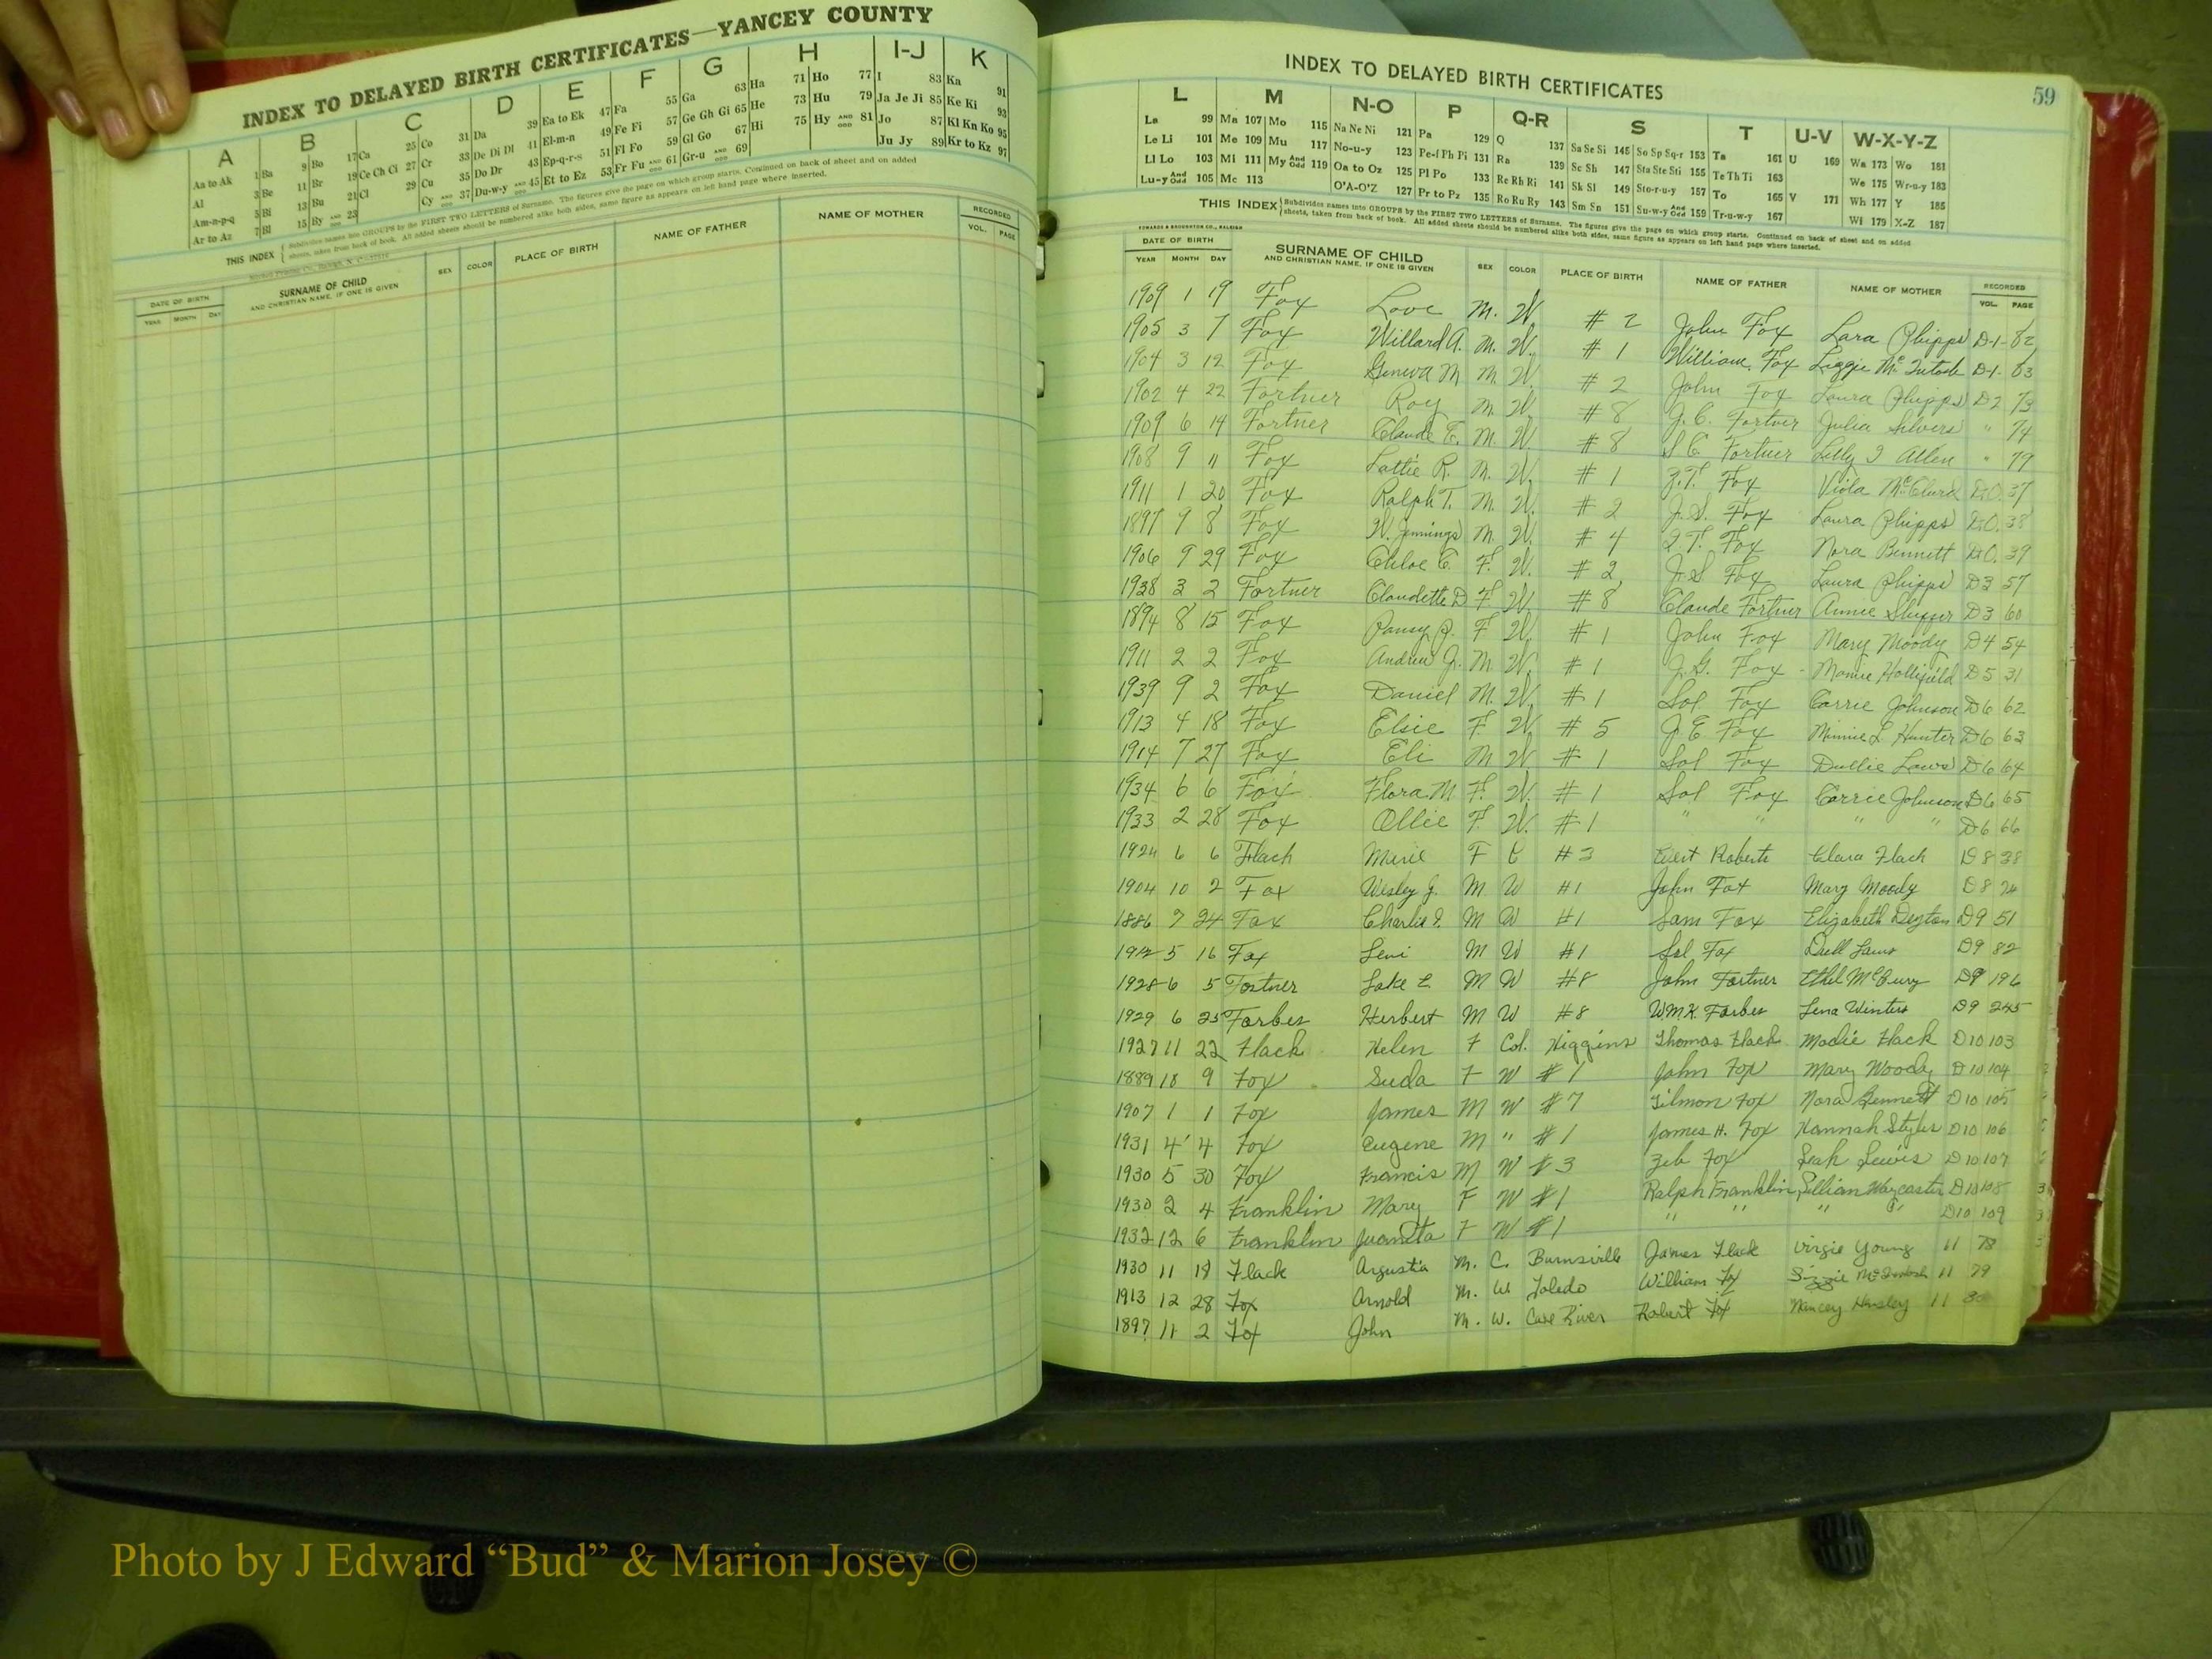 INDEX TO DELAYED BIRTH CERTIFICATES—YANCEY COUNTY
A B C D E F G H I-J K
Aa to Ak 1 Ba 9 Bo 17 Ca 25 Co 31 Da 39 Ea to Ek 47 Fa 55 Ga 63 Ha 71 Ho 77 I 83 Ka 91
Al 3 Be 11 Br 19 Ce Ch Ci 27 Cr 33 De Di Dl 41 El-m-n 49 Fe Fi 57 Ge Gh Gi 65 He 73 Hu 79 Ja Je Ji 85 Ke Ki 93
Am-n-p-q 5 Bi 13 Bu 21 Cl 29 Cu 35 Do Dr 43 Ep-q-r-s 51 Fl Fo 59 Gl Go 67 Hi 75 Hy AND ODD 81 Jo 87 Kl Kn Ko 95
Ar to Az 7 Bl 15 By AND ODD 23 Cy AND ODD 37 Du-w-y AND ODD 45 Et to Ez 53 Fr Fu AND ODD 61 Gr-u AND ODD 69 Ju Jy 89 Kr to Kz 97
THIS INDEX Subdivides names into GROUPS by the FIRST TWO LETTERS of Surname. The figures give the page on which group starts. Continued on back of sheet and on added
sheets, taken from back of book. All added sheets should be numbered alike both sides, same figure as appears on left hand page where inserted.
DATE OF BIRTH SURNAME OF CHILD SEX COLOR PLACE OF BIRTH NAME OF FATHER NAME OF MOTHER RECORDED
YEAR MONTH DAY AND CHRISTIAN NAME, IF ONE IS GIVEN VOL. PAGE
INDEX TO DELAYED BIRTH CERTIFICATES
59
L M N-O P Q-R S T U-V W-X-Y-Z
La 99 Ma 107 Mo 115 Na Ne Ni 121 Pa 129 Q 137 Sa Se Si 145 So Sp Sq-r 153 Ta 161 U 169 Wa 173 Wo 181
Le Li 101 Me 109 Mu 117 No-u-y 123 Pe-f Ph Pi 131 Ra 139 Sc Sh 147 Sta Ste Sti 155 Te Th Ti 163 We 175 Wr-u-y 183
Ll Lo 103 Mi 111 My And Odd 119 Oa to Oz 125 Pl Po 133 Re Rh Ri 141 Sk Sl 149 Sto-r-u-y 157 To 165 V 171 Wh 177 Y 185
Lu-y And Odd 105 Mc 113 O'A-O'Z 127 Pr to Pz 135 Ro Ru Ry 143 Sm Sn 151 Su-w-y And Odd 159 Tr-u-w-y 167 Wi 179 X-Z 187
THIS INDEX Subdivides names into GROUPS by the FIRST TWO LETTERS of Surname. The figures give the page on which group starts. Continued on back of sheet and on added
sheets, taken from back of book. All added sheets should be numbered alike both sides, same figure as appears on left hand page where inserted.
EDWARDS & BROUGHTON CO., RALEIGH
DATE OF BIRTH SURNAME OF CHILD SEX COLOR PLACE OF BIRTH NAME OF FATHER NAME OF MOTHER RECORDED
YEAR MONTH DAY AND CHRISTIAN NAME, IF ONE IS GIVEN VOL. PAGE
1909 1 19 Fox Love M. W. # 2 John Fox Lara Phipps D-1- 82
1905 3 7 Fox Willard A. M. W. # 1 William Fox Lizzie McIntosh D-1- 83
1904 3 12 Fox Geneva M M. W. # 2 John Fox Laura Phipps D2 73
1902 4 22 Fortner Roy M. W. # 8 J. C. Fortner Julia Silvers " 74
1909 6 14 Fortner Claude E. M. W. # 8 S C Fortner Lilly I Allen " 79
1908 9 11 Fox Lattie R. M. W. # 1 Z.T. Fox Viola McClurd D.O. 37
1911 1 20 Fox Ralph T. M. W. # 2 J. S. Fox Laura Phipps D.O. 38
1897 9 8 Fox W. Jennings M. W. # 4 I. T. Fox Nora Bennett D.O. 39
1906 9 29 Fox Chloe C. F. W. # 2 J. S Fox Laura Phipps D3 57
1938 3 2 Fortner Claudette D F. W. # 8 Claude Fortner Annie D3 60
1894 8 15 Fox Pansy F W. # 1 John Fox Mary Moody D4 54
1911 2 2 Fox Andrew J. M. W. # 1 J. G. Fox Mamie Hollifield D5 31
1939 9 2 Fox Daniel M. W. # 1 Sol Fox Carrie Johnson D6 62
1913 4 18 Fox Elsie F. W. # 5 J. E Fox Minnie L. Hunter D6 63
1914 7 27 Fox Eli M W # 1 Sol Fox Dullie Laws D6 64
1934 6 6 Fox Flora M F. W. # 1 Sol Fox Carrie Johnson D6 65
1933 2 28 Fox Ollie F. W. # 1 " " " " D6 66
1924 6 6 Flach Marie F C # 3 Evert Roberts Clara Flach D8 38
1904 10 2 Fox Wesley J. M W #1 John Fox Mary Moody D8
1886 7 24 Fox Charlie M W #1 Sam Fox Elizabeth Deyton D9 51
1912 5 16 Fox Levi M W #1 Sol Fox Dull Laws D9 82
1928 6 5 Fortner Lake E M W #8 John Fortner Ethel McCury D9 196
1929 6 25 Forbes Herbert M W #8 WM.K. Forbes Lena Winters D9 245
1927 11 22 Flack Helen F Col. Higgins Thomas Flack Modie Flack D10 103
1889 10 9 Fox Suda F W # 1 John Fox Mary Woody D10 104
1907 1 1 Fox James M W # 7 Tilmon Fox Nora Bennett D10 105
1931 4 4 Fox Eugene M " # 1 James H. Fox Hannah Styles D10 106
1930 5 30 Fox Francis M W # 3 Zeb Fox Leah Lewis D10 107
1930 2 4 Franklin Mary F W # 1 Ralph Franklin Lillian Waycaster D10 108
1932 12 6 Franklin Juanita F W # 1 " " " " D10 109
1930 11 18 Flack Argustia M. C. Burnsville James Flack Virgie Young 11 78
1913 12 28 Fox Arnold M. W. Toledo William Fox Lizzie McIntosh 11 79
1897 11 2 Fox John M. W. Cane River Robert Fox Nancey Hensley 11 80
Photo by J Edward “Bud” & Marion Josey ©